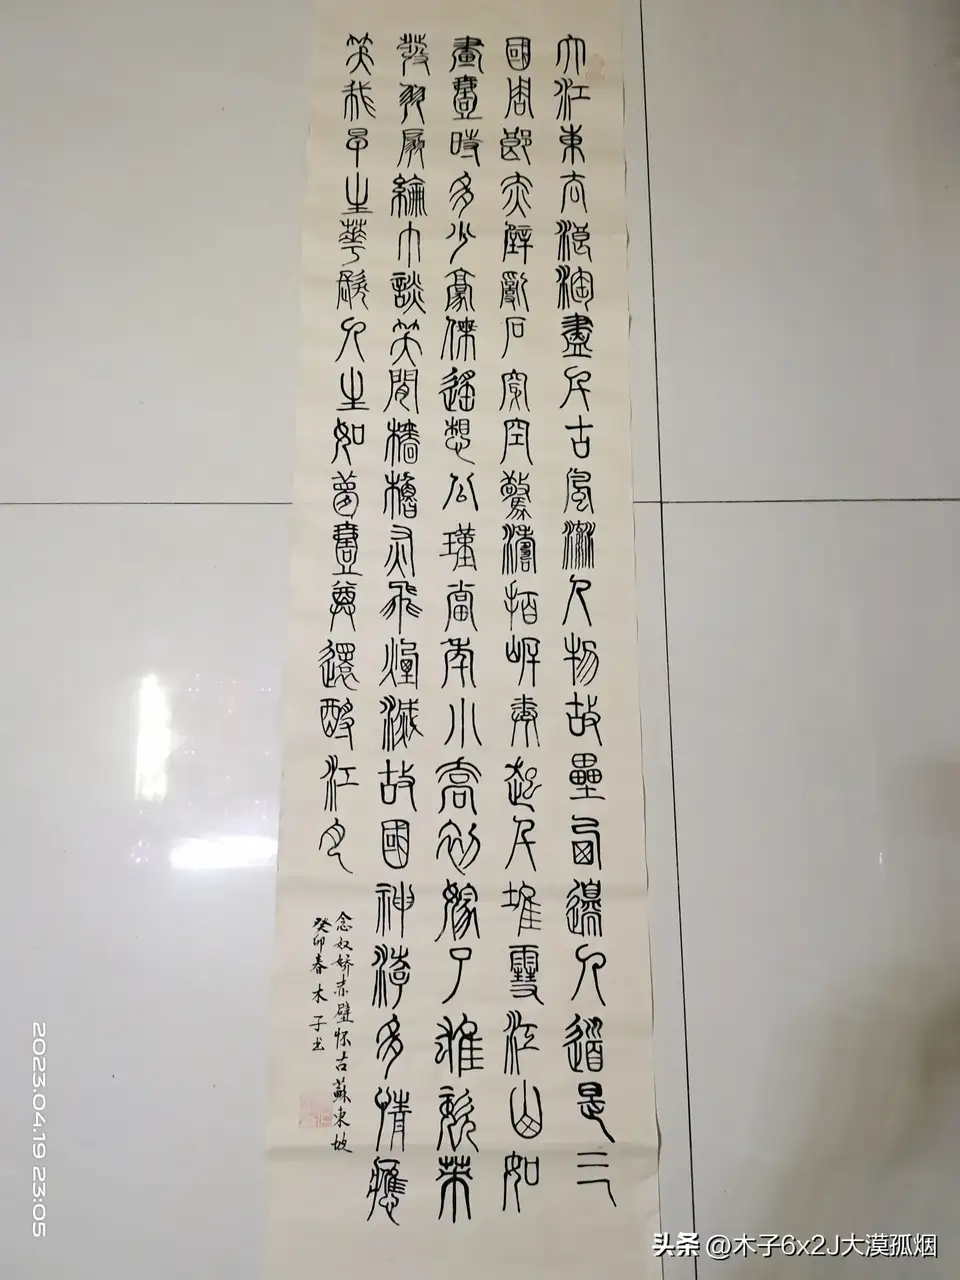 大江東去浪淘盡千古風流人物故壘西邊人道是三
國周郎赤壁亂石穿空驚濤拍岸卷起千堆雪江山如
畫壹時多少豪傑遙想公瑾當年小喬初嫁了雄姿英
發羽扇綸巾談笑間檣櫓灰飛煙滅故國神游多情應
笑我早生華髮人生如夢壹尊還酹江月
念奴娇赤壁怀古蘇東坡
癸卯春木子书
2023.04.19 23:05
头条 @木子6x2J大漠孤烟